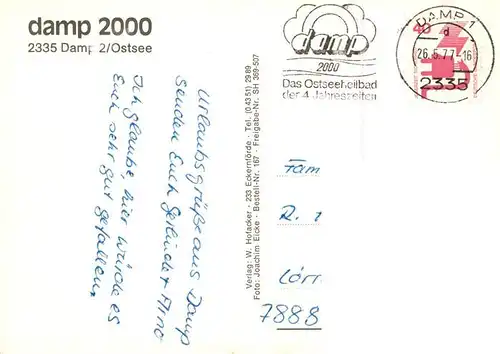 damp 2000
2335 Damp 2/Ostsee
damp
2000
Das Ostseeheilbad
der 4 Jahreszeiten
DAMP 1
d
26.5.77-16
2335
40
Urlaubsgrüße aus Damp
senden Euch Gerlinde + Arno
Ich glaube, hier würde es
Euch sehr gut gefallen.
Verlag: W. Hofacker · 233 Eckernförde · Tel. (04351) 2989
Foto: Joachim Eicke · Bestell-Nr. 167 · Freigabe-Nr. SH 369-507
Fam
R.
Lörr
7888